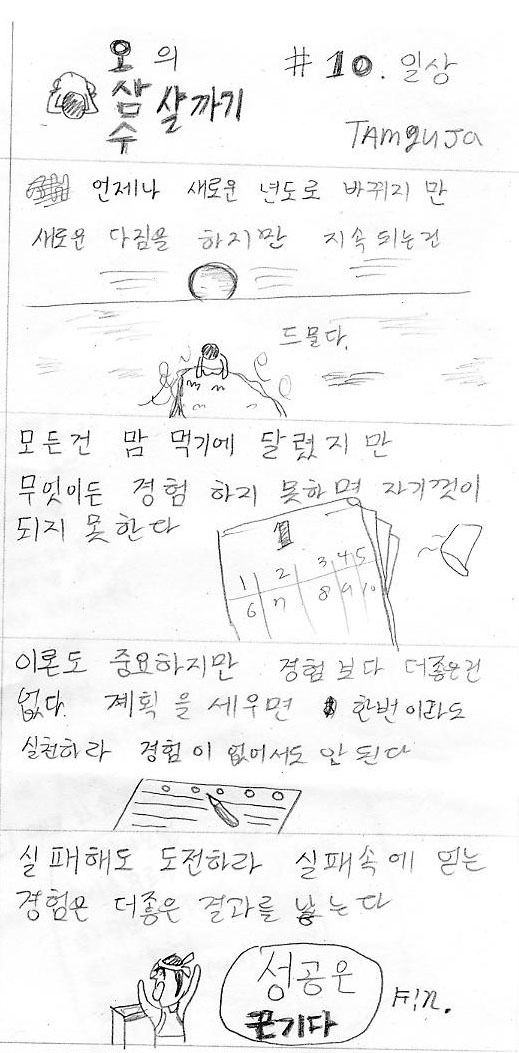 오의 #10. 일상
삼살까기
수 TAMguJa
언제나 새로운 년도로 바뀌지만
새로운 다짐을 하지만 지속되는건
드물다.
모든건 맘 먹기에 달렸지만
무엇이든 경험 하지 못하명 자기것이
되지 못한다
1
1 2 3 4 5
6 7 8 9 10
이론도 중요하지만 경험보다 더좋은건
없다. 계획을 세우면 한번이라도
실천하라 경험이 없어서도 안된다
실패해도 도전하라 실패속에 얻는
경험은 더좋은 결과를 낳는다
성공은
끈기다
Fin.